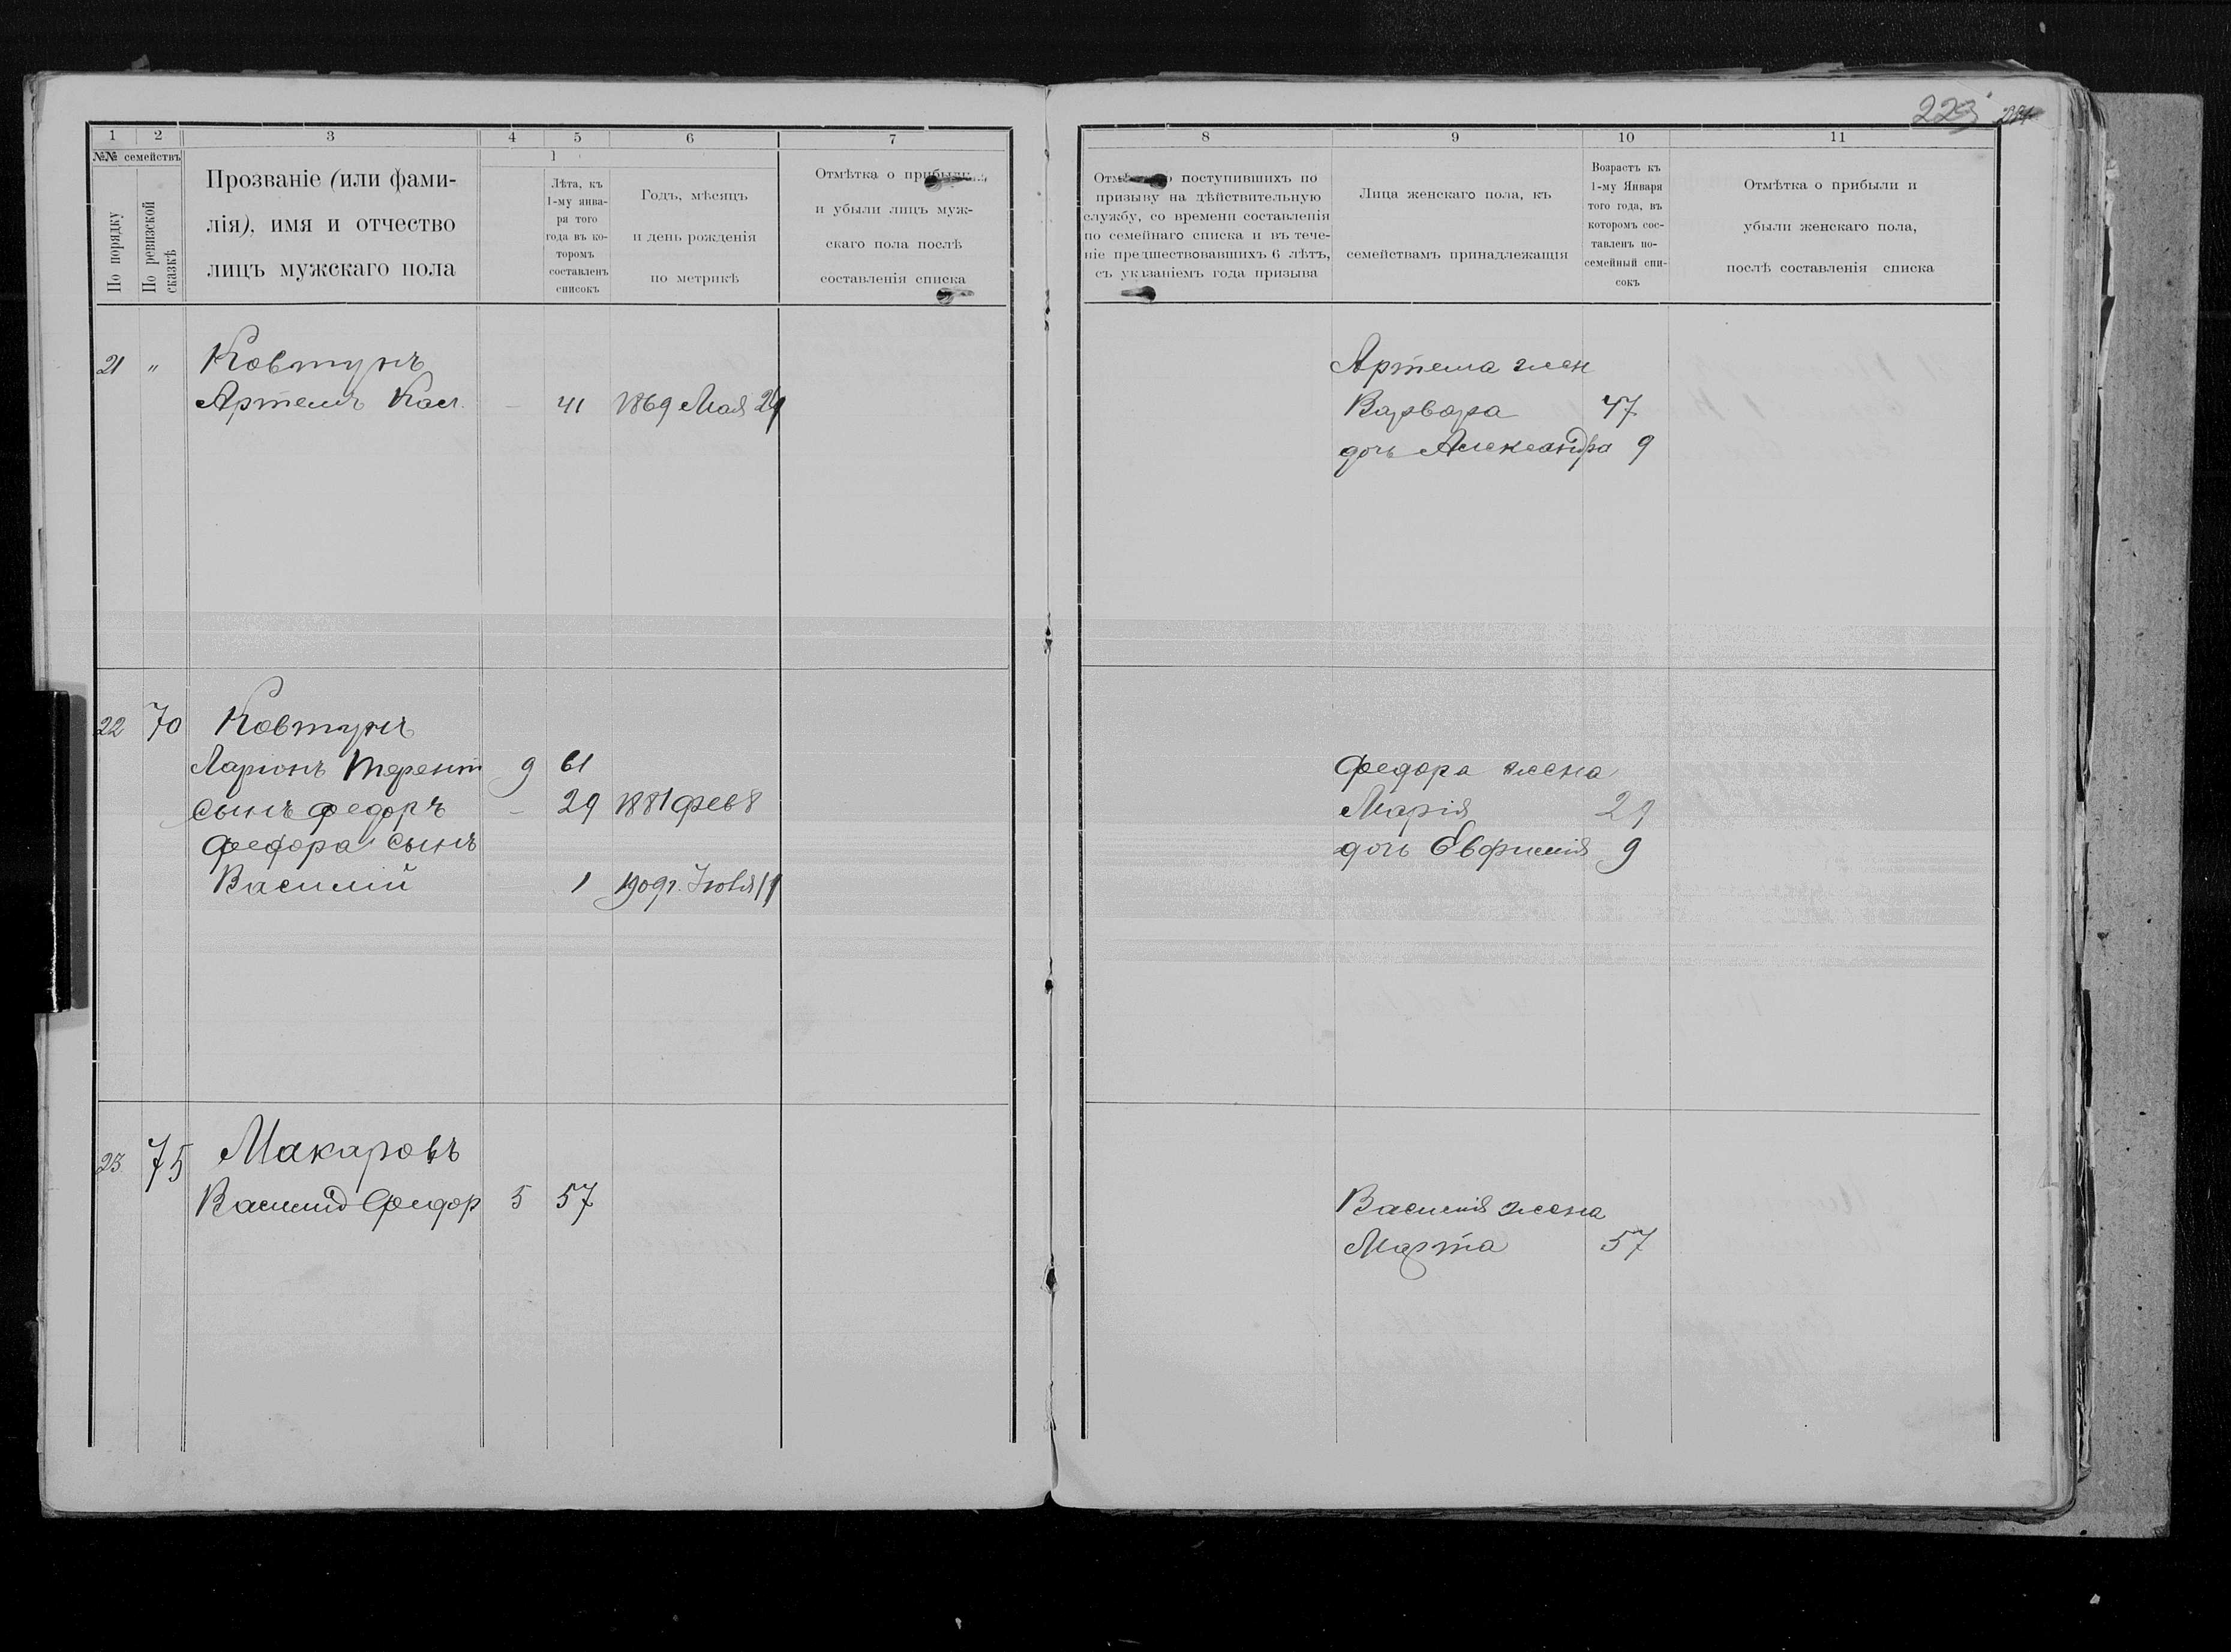 223
1 2 3 4 5 6 7
№№ семействъ
По порядку
По ревизской сказкѣ
Прозваніе (или фами-
лія), имя и отчество
лицъ мужскаго пола
1
Лѣта, къ
1-му янва-
ря того
года въ ко-
торомъ
составленъ
списокъ
Годъ, мѣсяцъ
и день рожденія
по метрикѣ
Отмѣтка о прибыли
и убыли лицъ муж-
скаго пола послѣ
составленія списка
8 9 10 11
поступившихъ по
призыву на дѣйствительную
службу, со времени составленія
по семейнаго списка и въ тече-
ніе предшествовавшихъ 6 лѣтъ,
съ указаніемъ года призыва
Лица женскаго пола, къ
семействамъ принадлежащія
Возрастъ къ
1-му Января
того года, въ
которомъ сос-
тавленъ по-
семейный спи-
сокъ
Отмѣтка о прибыли и
убыли женскаго пола,
послѣ составленія списка
21 " Ковтунъ
Артемъ - 41 1869 Мая
Артема жен
Варвара 47
дочь Александра 9
22 70 Ковтунъ
Ларіонъ Терент 9 61
сынъ Федоръ - 29 1881 Фев 8
Федора сынъ
Василій 1 1909г.
Федора жена
Марія 29
дочь Евфимія 9
23 75 Макаровъ
Василій Федор 5 57
Василія жена
Марта 57